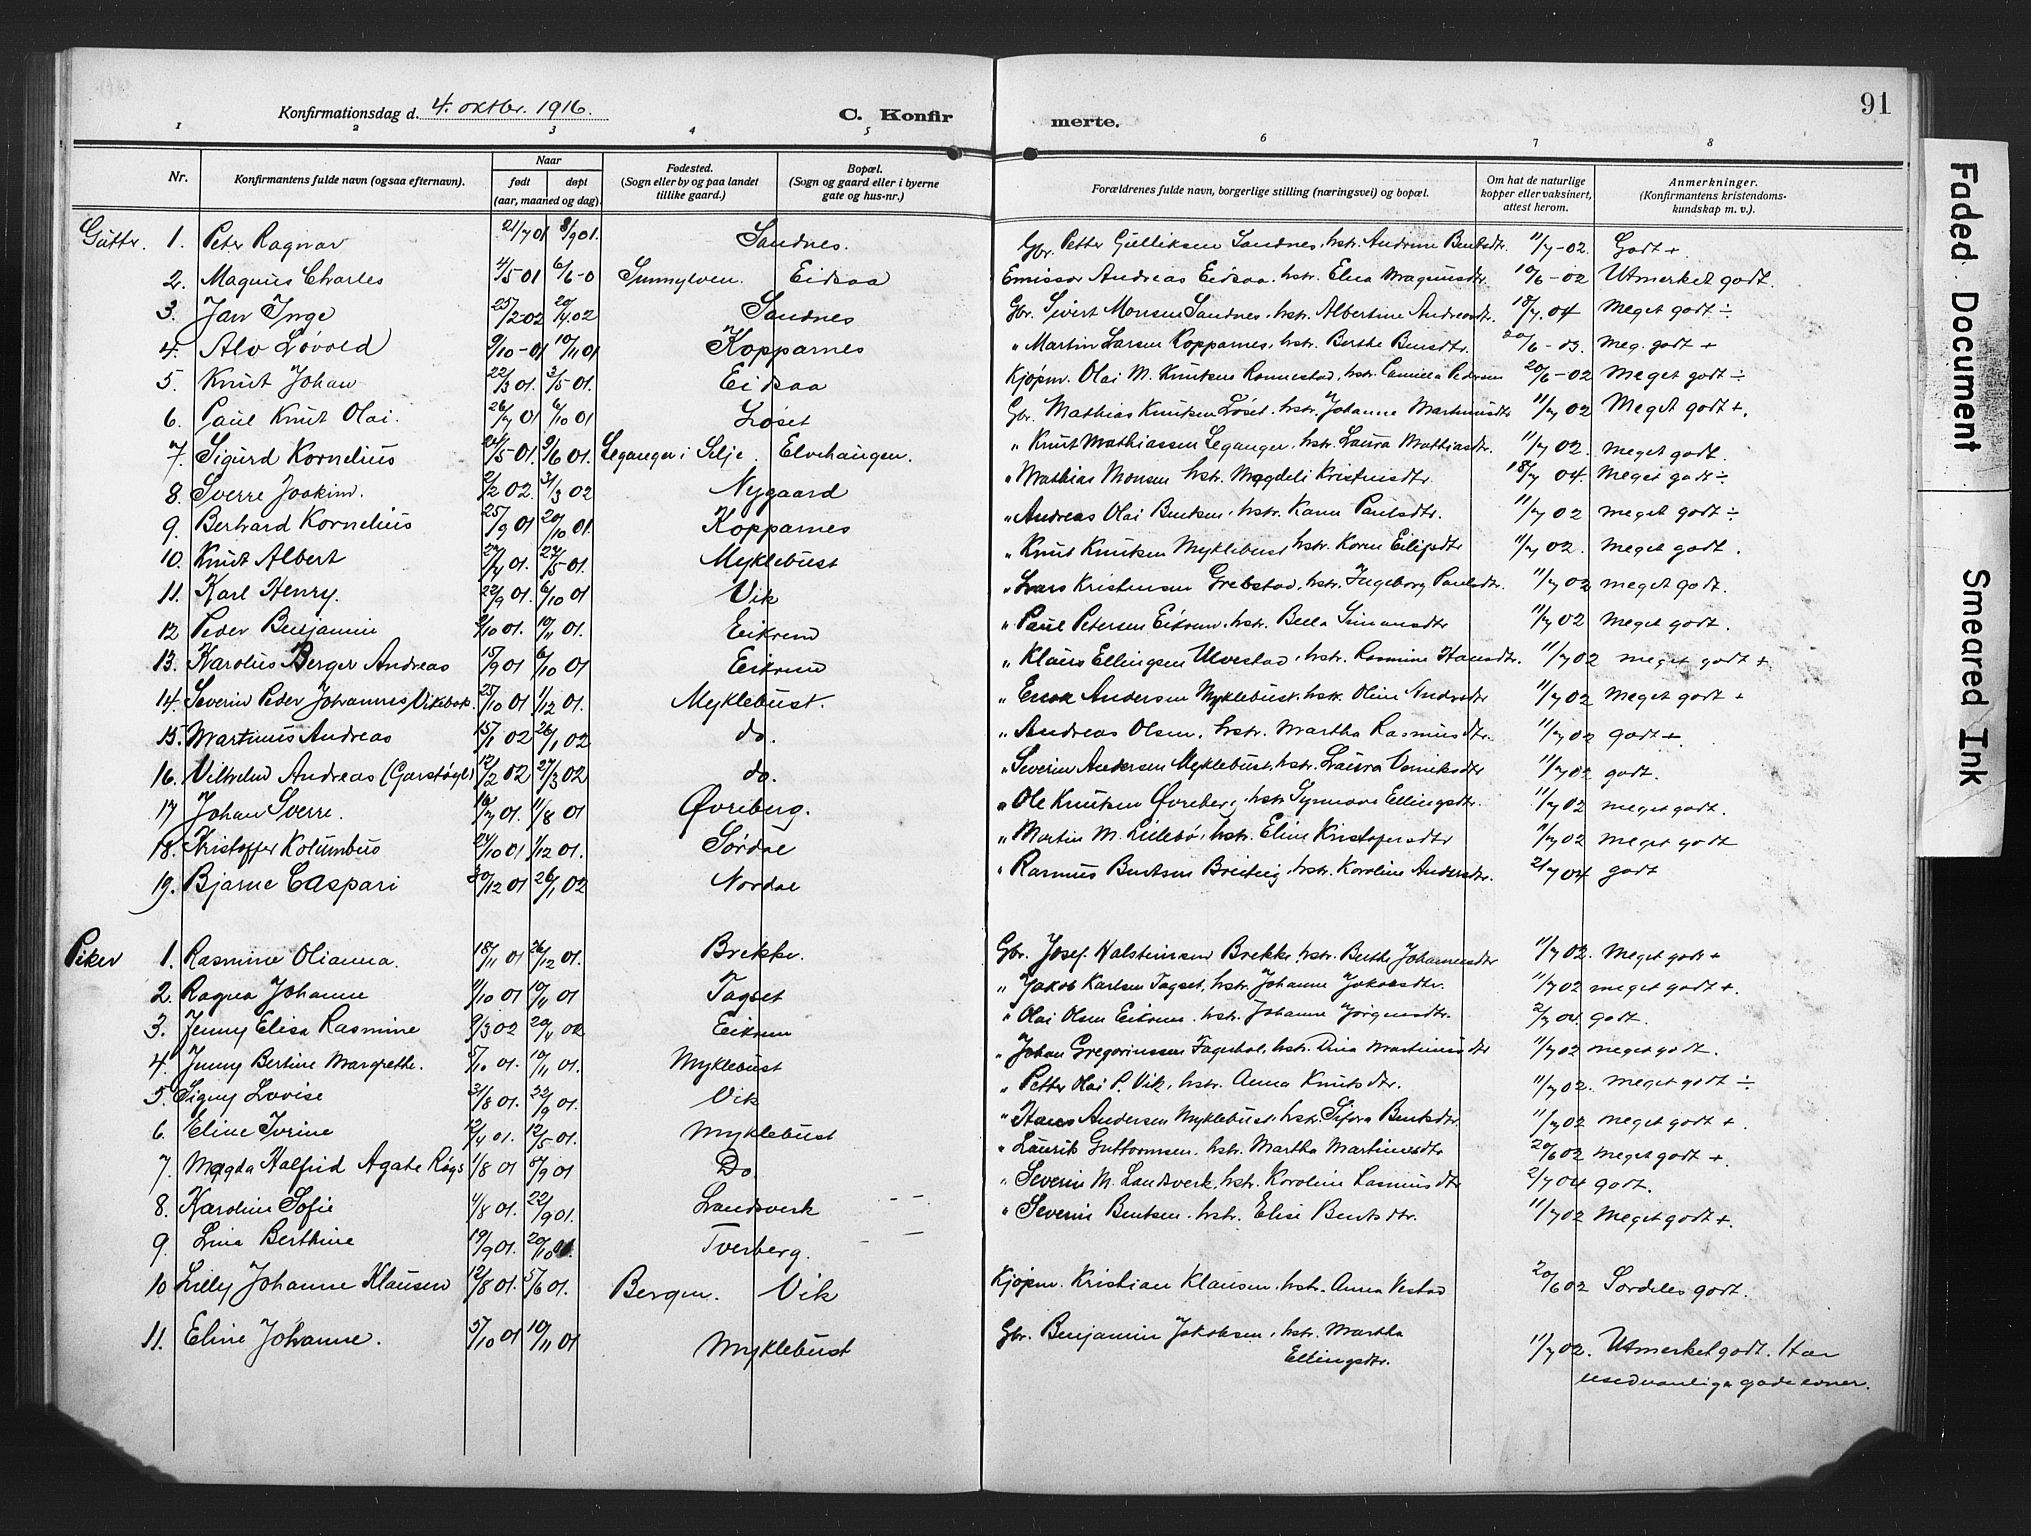 Konfirmationsdag d. 4. oktbr. 1916. C. Konfir merte. 91
1 2 3 4 5 6 7 8
Nr. Konfirmantens fulde navn (ogsaa efternavn). Naar født døpt (aar, maaned og dag). Fødested. (Sogn eller by og paa landet tillike gaard.) Bopæl. (Sogn og gaard eller i byerne gate og hus-nr.) Forældrenes fulde navn, borgerlige stilling (næringsvei) og bopæl. Om hat de naturlige kopper eller vaksinert, attest herom. Anmerkninger. (Konfirmantens kristendoms-kundskap m. v.).
Gutter. 1. Peter Ragnar 21/7 01 8/9 01. Sandnes. Gbr. Petter Gulliksen Sandnes, hstr. Andrine Bentsdtr. 11/7-02. Godt +
2. Magnus Charles 4/5-01 6/6-0 Sunnylven. Eidsaa Emissær Andreas Eidsaa, hstr. Elna Magnusdtr. 10/6-02 Utmerket godt.
3. Jan Inge 25/2-02 20/4 02 Sandnes Gbr. Sivert Monsen Sandnes, hstr. Albertine Andreasdtr. 18/7. 04 Meget godt ÷
4. Alv Løvold 9/10-01 10/11 01 Kopparnes " Martin Larsen Kopparnes, hstr. Berthe Bensdtr. 20/6-03. Meg. godt +
5. Knut Johan 22/3 01. 3/5 01. Eidsaa Kjøpm. Olai M. Knutsen Rønnestad, hstr. Camilla Pedersen 20/6-02 Meget godt ÷
6. Paul Knut Olai. 26/7 01 6/10 01 Løset Gbr. Mathias Knutsen Løset, hstr. Johanne Martinusdtr 11/7 02 Meget godt +.
7. Sigurd Kornelius 24/5 01. 9/6 01. Leganger i Selje. Elvehaugen. " Knut Mathiassen Leganger, hstr. Laura Mathiasdtr. 11/7 02. meget godt.
8. Sverre Joakim. 2/2 02. 31/3 02 Nygaard " Mathias Monsen hstr. Magdeli Kristensdtr 18/7 04. Meget godt ÷
9. Berhard Kornelius 25/9 01 20/10 01. Kopparnes " Andreas Olai Bentsen, hstr. Karen Paulsdtr. 11/7 02 meget godt ÷
10. Knut Albert 24/4 01. 27/5 01. Myklebust " Knut Knutsen Myklebust hstr. Karen Eilifsdtr 11/7 02. meget godt.
11. Karl Henry. 22/9 01. 6/10 01 Vik " Lars Kristensen Grebstad, hstr. Ingeborg Paulsdtr. 11/7 02 meget godt.
12 Peder Benjamin 9/10 01. 10/11 01. Eikrem " Paul Petersen Eikrem, hstr. Bella Simonsdtr 11/7 02 meget godt.
13. Karolus Berger Andreas 15/9 01 6/10 01 Eikrem " Klaus Ellingsen Ulvestad, hstr. Rasmine Hansdtr. 11/7 02 meget godt +
14. Severin Peder Johannes Vikebak. 25/10 01 1/12 01. Myklebust. " Andersen Myklebust, hstr. Oline Andrsdtr 11/7 02 meget godt +
15. Martinus Andreas 15/1 02 26/1 02 do. " Andreas Olsen, hstr. Martha Rasmusdtr. 11/7 02 godt +.
16. Vilhelm Andreas (Garstøyl) 12/2 02 27/3 02 do. " Severin Andersen Myklebust, hstr. Laura 11/7 02 godt.
17 Johan Sverre. 16/7 01. 11/8 01 Øvreberg. " Ole Knutsen Øvreberg, hstr. Synnøve Ellingsdtr. 11/7 02 meget godt.
18. Kristoffer Kolumbus 24/10 01 1/12 01. Sørdal " Martin M. Lillebø, hstr. Eline Kristofersdtr 11/7 02 meget godt
19. Bjarne Caspari 30/12 01 26/1 02 Nordal " Rasmus Bentsen Breiteig, hstr. Karoline Andersdtr. 21/7 04 godt
Piker 1. Rasmine Olianna. 18/11 01 26/12 01. Brekke. Gbr. Josef Halsteinsen Brekke, hstr. Berthe Johannesdtr 11/7 02. Meget godt +
2. Ragna Johanne 9/10 01 10/11 01 Tagset " Jakob Karlsen Tagset, hstr. Johanne Jakobsdtr. 11/7 02 meget godt +.
3. Jenny Elisa Rasmine 9/3 02 20/4 02 Eikrem " Olai Olsen Eikrem, hstr. Johanne Jørgensdtr. 2/7 04. godt.
4. Jenny Bertine Margrethe. 5/10 01. 10/11 01. Myklebust " Johan Gregoriussen Fagerhol, hstr. Dina Martinusdtr 11/7 02 meget godt.
5. Signy Lovise 31/8 01. 22/9 01. Vik " Petter Olai P. Vik, hstr. Anna Knutsdtr. 11/7 02. meget godt ÷
6. Eline Ivrine 12/4 01. 12/5 01. Myklebust " Hans Andersen Myklebust, hstr. Sifora Bentsdtr 11/7 02 meget godt +.
7. Magda Halfrid Agate Røys 1/8 01 8/9 01 Do " Laurits Guttormsen, hstr. Martha Martinusdtr 20/6 02 meget godt +.
8. Karoline Sofie 4/8 01. 22/9 01. Landsverk " Severin M. Landsverk, hstr. Karoline Rasmusdtr 2/7 04 godt.
9. Lina Berthine 19/9 01. 20/10 01. Tverberg. " Severin Bentsen, hstr. Elise Bentsdtr. 11/7 02 Meget godt +.
10 Lilly Johanne Klausen 12/8 01. 5/6 01. Bergen. Vik Kjøpm. Kristian Klausen, hstr. Anna Vestad 20/6 02 Særdeles godt.
11. Eline Johanne. 5/10 01 10/11 01 Myklebust Gbr. Benjamin Jakobsen, hstr. Martha Ellingsdtr. 11/7 02. Utmerket godt. Har usedvanlig gode evner.
Faded Document
Smeared Ink